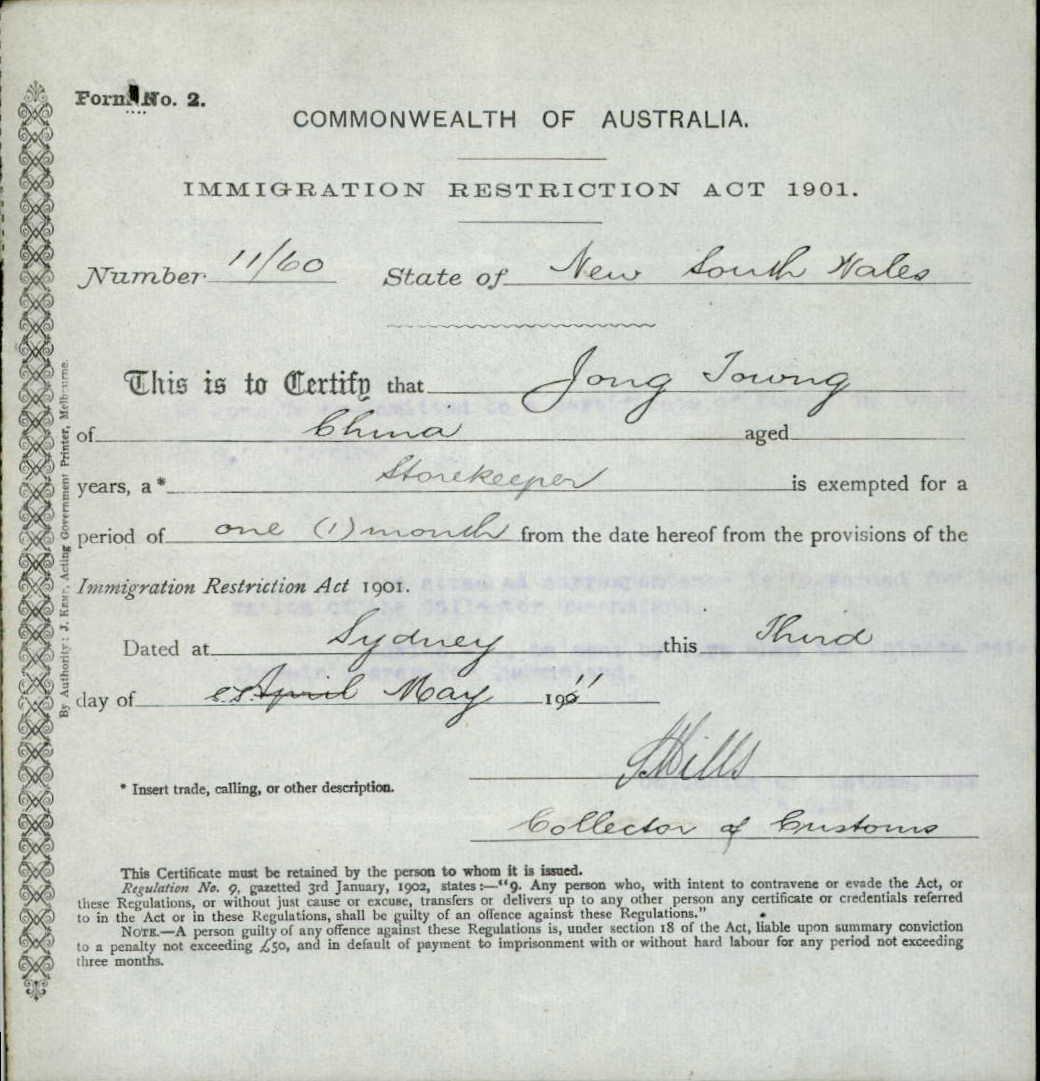 Form No. 2.
COMMONWEALTH OF AUSTRALIA.
IMMIGRATION RESTRICTION ACT 1901.
Number 11/60 State of New South Wales
This is to Certify that Jong Towng
of China aged
years, a* Storekeeper is exempted for a
period of one (1) month from the date hereof from the provisions of the
Immigration Restriction Act 1901.
Dated at Sydney this Third
day of April May 190 11
* Insert trade, calling, or other description.
Collector of Customs
This Certificate must be retained by the person to whom it is issued.
Regulation No. 9, gazetted 3rd January, 1902, states:—"9. Any person who, with intent to contravene or evade the Act, or
these Regulations, or without just cause or excuse, transfers or delivers up to any other person any certificate or credentials referred
to in the Act or in these Regulations, shall be guilty of an offence against these Regulations."
NOTE.—A person guilty of any offence against these Regulations is, under section 18 of the Act, liable upon summary conviction
to a penalty not exceeding £50, and in default of payment to imprisonment with or without hard labour for any period not exceeding
three months.
By Authority: J. KEMP, Acting Government Printer, Melbourne.